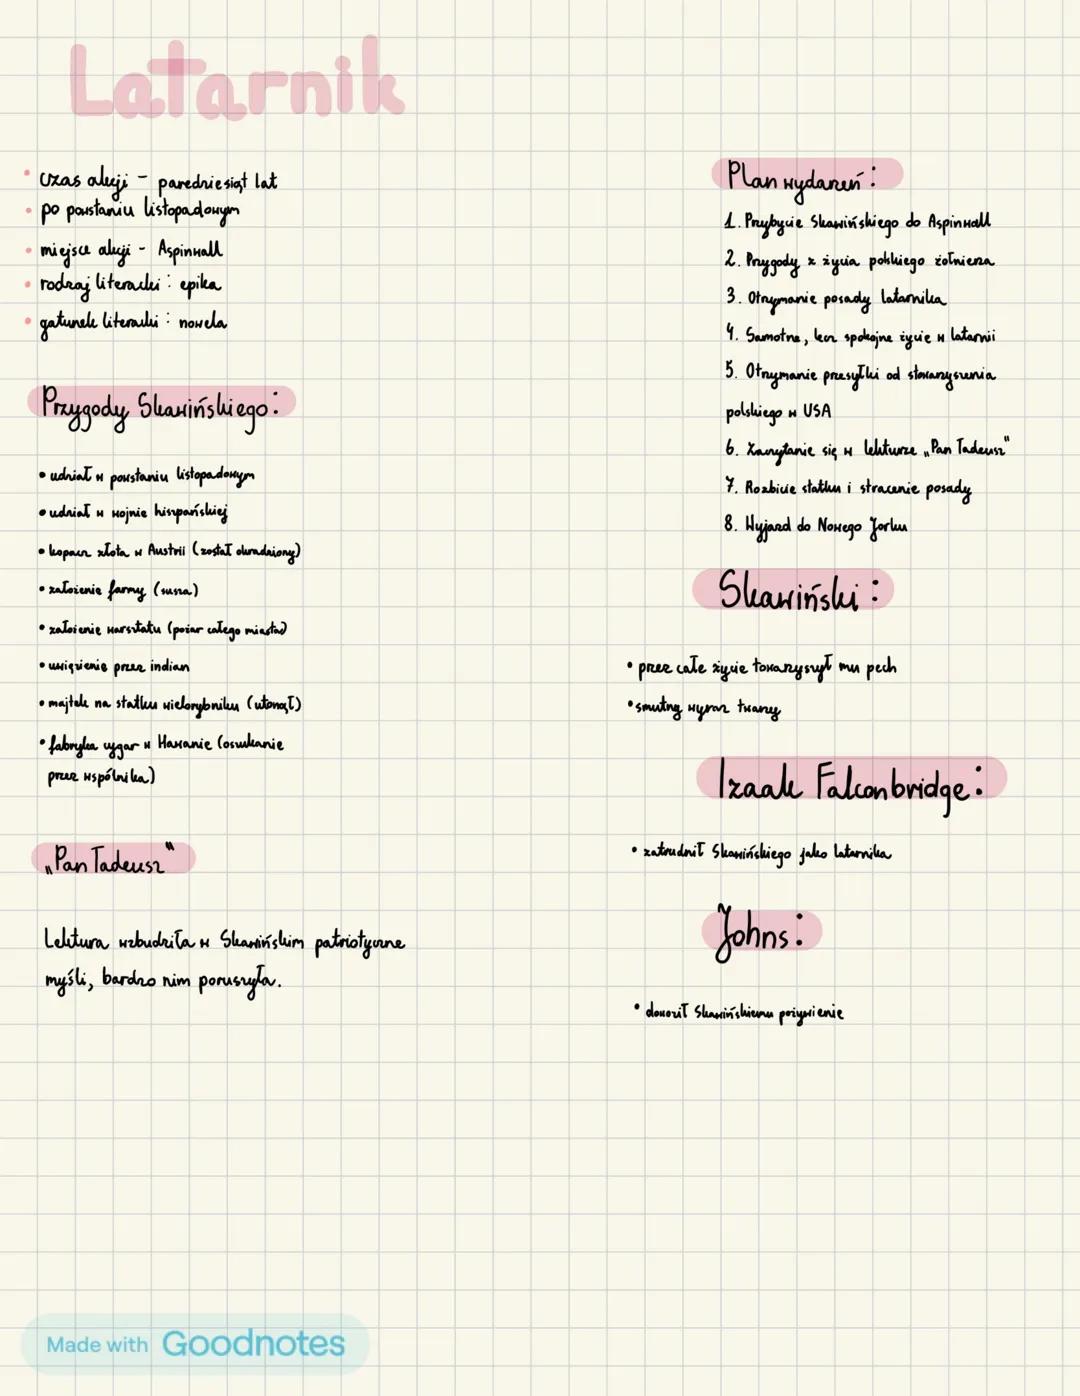 Latarnik
• czas akcji - paredziesiąt lat
• po powstaniu listopadowym
• miejsce akcji - Aspinwall
• rodzaj literacki : epika
• gatunek literacki : nowela
Przygody Skawińskiego:
• udział w powstaniu listopadowym
• udział w wojnie hiszpańskiej
• kopacz złota w Austrii (został okradziony)
• założenie farmy (susza)
• założenie warsztatu (pożar całego miasta)
• uwięzienie przez indian
• majtek na statku wielorybniku (utonął)
• fabryka cygar w Hawanie (oszukanie
przez wspólnika)
„Pan Tadeusz"
Lektura wzbudziła w Skawińskim patriotyczne
myśli, bardzo nim poruszyła.
Plan wydarzeń :
1. Przybycie Skawińskiego do Aspinwall
2. Przygody z życia polskiego żołnierza
3. Otrzymanie posady latarnika
4. Samotne, lecz spokojne życie w latarnii
5. Otrzymanie przesyłki od stowarzyszenia
polskiego w USA
6. Zaczytanie się w lekturze „Pan Tadeusz"
7. Rozbicie statku i stracenie posady
8. Wyjazd do Nowego Jorku
Skawiński :
• przez całe życie towarzyszył mu pech
• smutny wyraz twarzy
Izaak Falconbridge:
• zatrudnił Skawińskiego jako latarnika
Johns:
• dowoził Skawińskiemu pożywienie
Made with Goodnotes